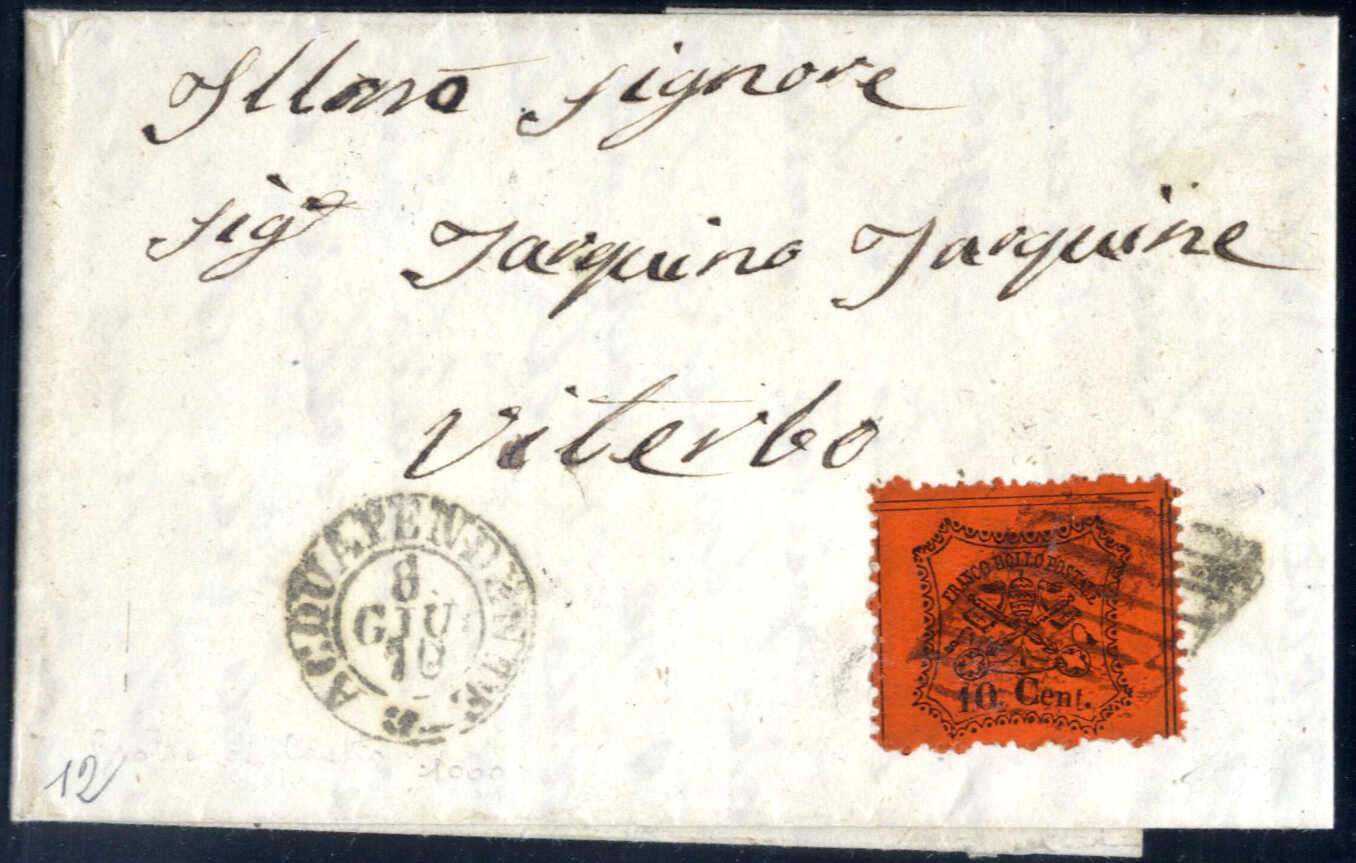 Illmo Signore
Sigr Tarquino Tarquine
Viterbo
ACQUAPENDENTE
8
GIU
70
FRANCO BOLLO POSTALE
10 Cent.
1000
12